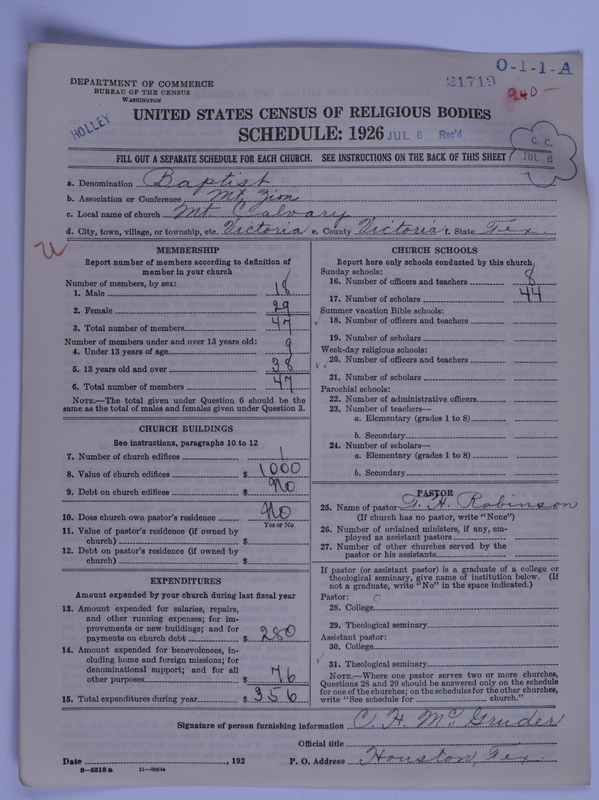 O-1-1-A
21719
940-
DEPARTMENT OF COMMERCE
BUREAU OF THE CENSUS
WASHINGTON
HOLLEY
UNITED STATES CENSUS OF RELIGIOUS BODIES
SCHEDULE: 1926 JUL 6 Rec'd
C. C.
JUL 6
FILL OUT A SEPARATE SCHEDULE FOR EACH CHURCH. SEE INSTRUCTIONS ON THE BACK OF THIS SHEET
a. Denomination Baptist
b. Association or Conference Mt. Zion
c. Local name of church Mt Calvary
d. City, town, village, or township, etc. Victoria e. County Victoria f. State Tex.
MEMBERSHIP
Report number of members according to definition of
member in your church
Number of members, by sex:
1. Male 18
2. Female 29
3. Total number of members 47
Number of members under and over 13 years old:
4. Under 13 years of age 9
5. 13 years old and over 38
6. Total number of members 47
NOTE.—The total given under Question 6 should be
same as the total of males and females given under Question 3.
CHURCH BUILDINGS
See instructions, paragraphs 10 to 12
7. Number of church edifices 1
8. Value of church edifices $ 1000
9. Debt on church edifices $ No
10. Does church own pastor's residence No
Yes or No
11. Value of pastor's residence (if owned by
church) $
12. Debt on pastor's residence (if owned by
church) $
EXPENDITURES
Amount expended by your church during last fiscal year
13. Amount expended for salaries, repairs,
and other running expenses; for im-
provements or new buildings; and for
payments on church debt $ 280
14. Amount expended for benevolences, in-
cluding home and foreign missions; for
denominational support; and for all
other purposes $ 76
15. Total expenditures during year $ 356
CHURCH SCHOOLS
Report here only schools conducted by this church
Sunday schools:
16. Number of officers and teachers 8
17. Number of scholars 44
Summer vacation Bible schools:
18. Number of officers and teachers
19. Number of scholars
Week-day religious schools:
20. Number of officers and teachers
21. Number of scholars
Parochial schools:
22. Number of administrative officers
23. Number of teachers—
a. Elementary (grades 1 to 8)
b. Secondary
24. Number of scholars—
a. Elementary (grades 1 to 8)
b. Secondary
PASTOR
25. Name of pastor H. Robinson
(If church has no pastor, write "None")
26. Number of ordained ministers, if any, em-
ployed as assistant pastors
27. Number of other churches served by the
pastor or his assistants
If pastor (or assistant pastor) is a graduate of a college or
theological seminary, give name of institution below. (If
not a graduate, write "No" in the space indicated.)
Pastor:
28. College
29. Theological seminary
Assistant pastor:
30. College
31. Theological seminary
NOTE.—Where one pastor serves two or more churches,
Questions 28 and 29 should be answered only on the schedule
for one of the churches; on the schedules for the other churches,
write "See schedule for church."
Signature of person furnishing information C. H. McGruder
Official title
Date , 192 P. O. Address Houston, Tex.
8—5518 a